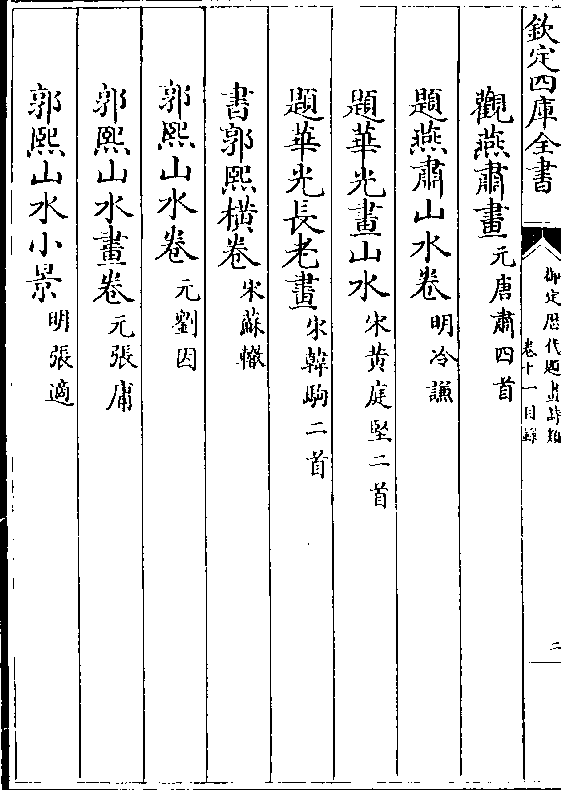 欽定四庫全書
御定歴代題畫詩類
卷十一目録
二
觀燕肅畫 元唐肅四首
題燕肅山水卷 明冷謙
題華光畫山水 宋黄庭堅二首
題華光長老畫 宋韓駒二首
書郭熙横卷 宋蘇轍
郭熙山水卷 元劉因
郭熙山水畫卷 元張庸
郭熙山水小景 明張適